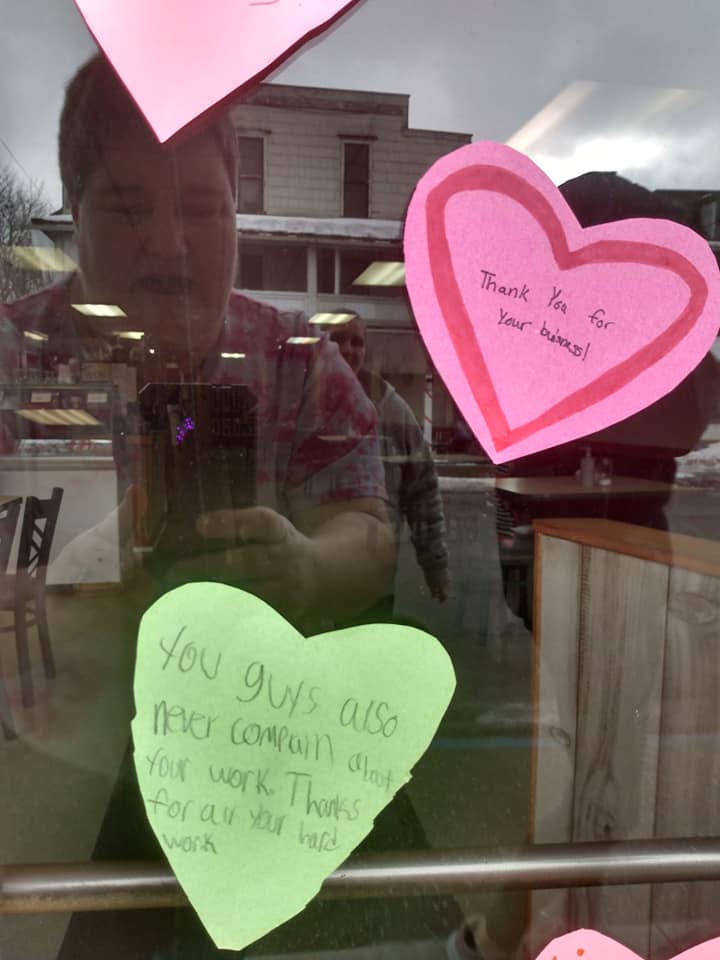 Thank You for
Your buisness!
You guys also
never compain about
your work. Thanks
for all your hard
work